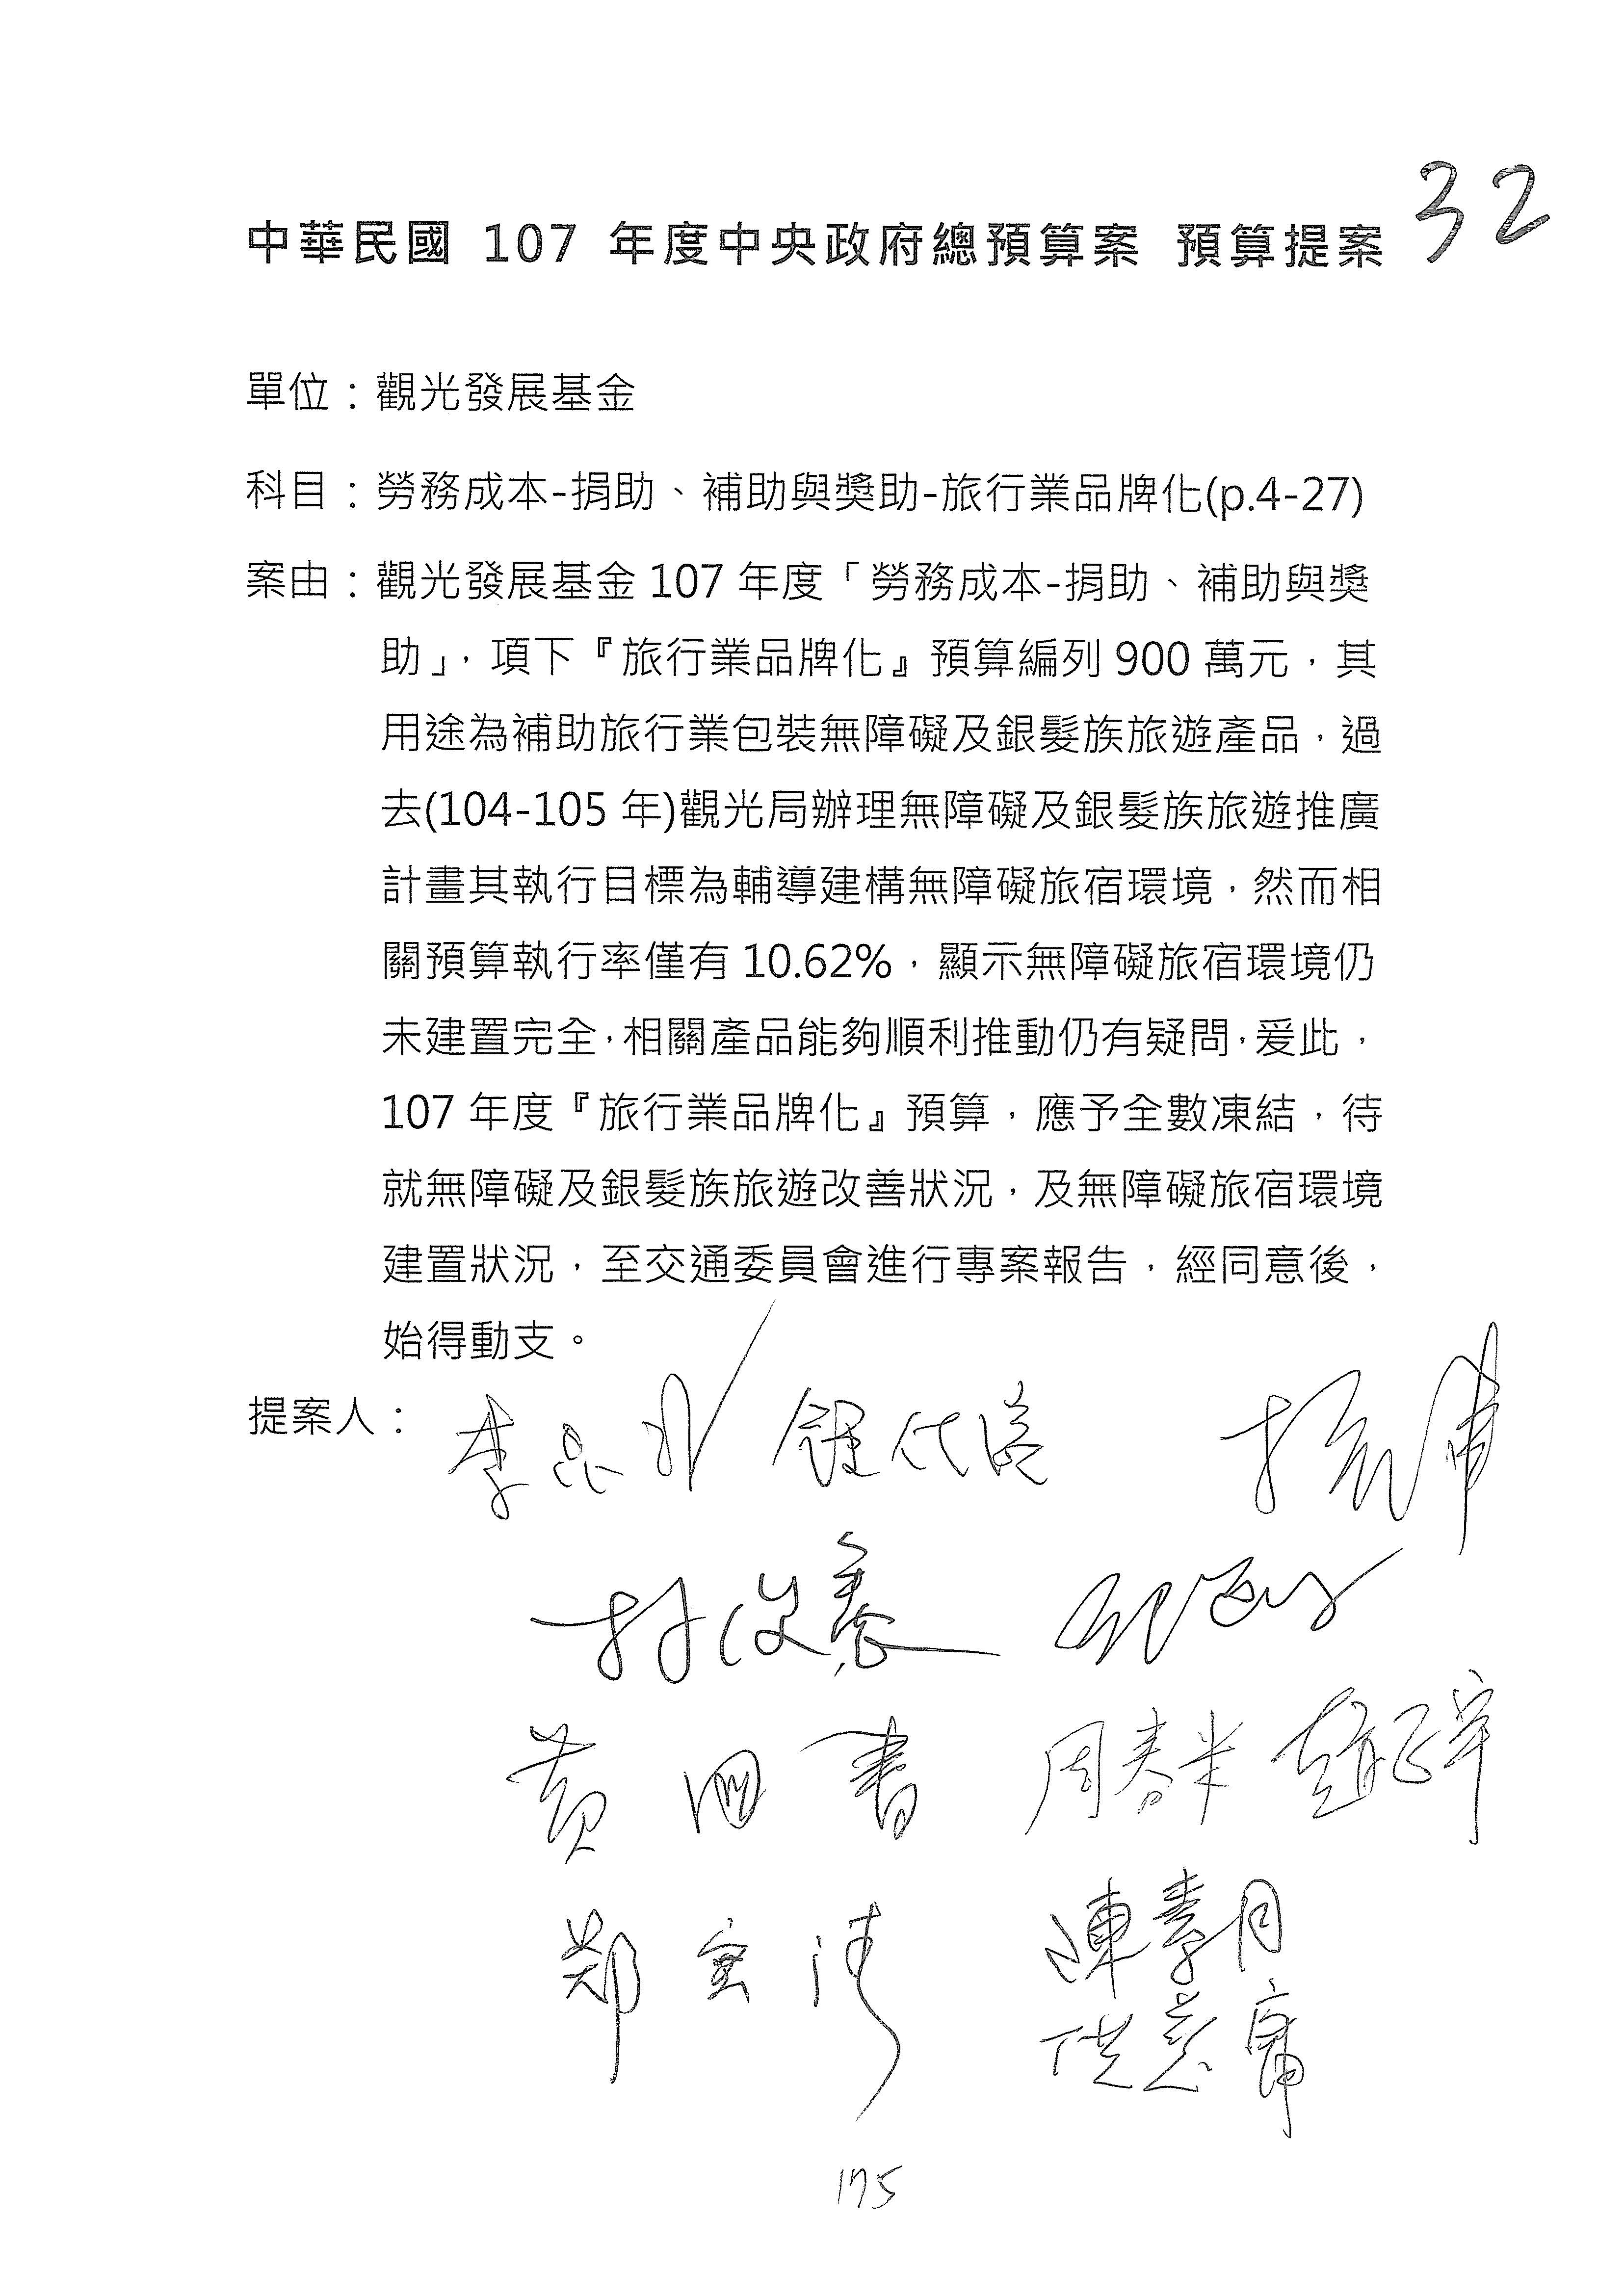 32
中華民國 107 年度中央政府總預算案 預算提案
單位：觀光發展基金
科目：勞務成本-捐助、補助與獎助-旅行業品牌化(p.4-27)
案由：觀光發展基金 107 年度「勞務成本-捐助、補助與獎
助」，項下『旅行業品牌化』預算編列 900 萬元，其
用途為補助旅行業包裝無障礙及銀髮族旅遊產品，過
去(104-105 年)觀光局辦理無障礙及銀髮族旅遊推廣
計畫其執行目標為輔導建構無障礙旅宿環境，然而相
關預算執行率僅有 10.62%，顯示無障礙旅宿環境仍
未建置完全，相關產品能夠順利推動仍有疑問，爰此，
107 年度『旅行業品牌化』預算，應予全數凍結，待
就無障礙及銀髮族旅遊改善狀況，及無障礙旅宿環境
建置狀況，至交通委員會進行專案報告，經同意後，
始得動支。
提案人：
林俊憲
黃國書 周春米
鄭寶清 陳素月
175